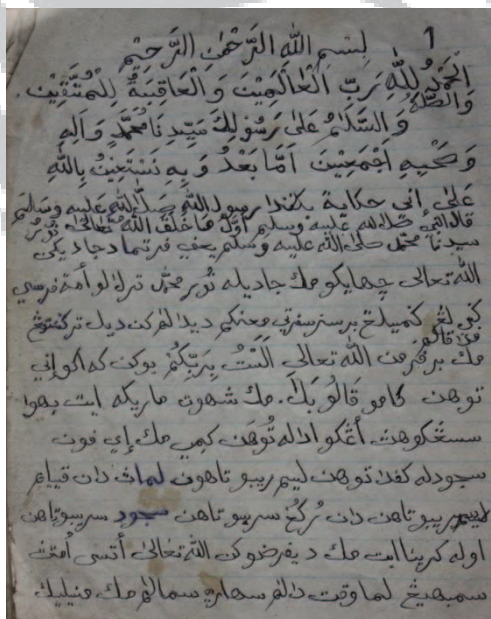 1
بِسْمِ اللّٰهِ الرَّحْمٰنِ الرَّحِيْمِ
اَلْحَمْدُ لِلّٰهِ رَبِّ الْعَالَمِيْنَ وَالْعَاقِبَةُ لِلْمُتَّقِيْنَ .
وَالصَّلَاةُ وَالسَّلَامُ عَلىٰ رَسُوْلِكَ سَيِّدِنَا مُحَمَّدٍ وَاٰلِهِ
وَصَحْبِهِ اَجْمَعِيْنَ اَمَّا بَعْدُ وَبِهِ نَسْتَعِيْنُ بِاللّٰهِ
عَلىٰ اني حكاية بكندا رسول الله صَلَّى الله عليه وسلم
قال النبي صلى الله عليه وسلم اَوَّلُ مَا خَلَقَ اللّٰهُ تعالىٰ نُوْرُ
سيدنا محمّد صلى الله عليه وسلم يعني فرتما دجاديكن
الله تعالى چهايكو مك جاديله نور محمّد
برفرمن الله تعالى اَلَسْتُ بِرَبِّكُمْ بوكن كه اكو اني
توهن كامو قَالُوْ بَلىٰ. مك شهوت مريكه ايت بهوا
سسڠكوهڽ اڠكو اداله تُوهَن كمي مك إي فون
سجودله كفد توهن ليم ريبو تاهون لماڽ دان قيام
ليم ريبو تاهن دان رُكُعْ سريبو تاهن سجود سريبو تاهن
اوله كرينا ايت مك دفرضوكن الله تعالىٰ أتسى أُمّتڽ
سمبهيڠ لما وقت دالم سهاري سمالم مك